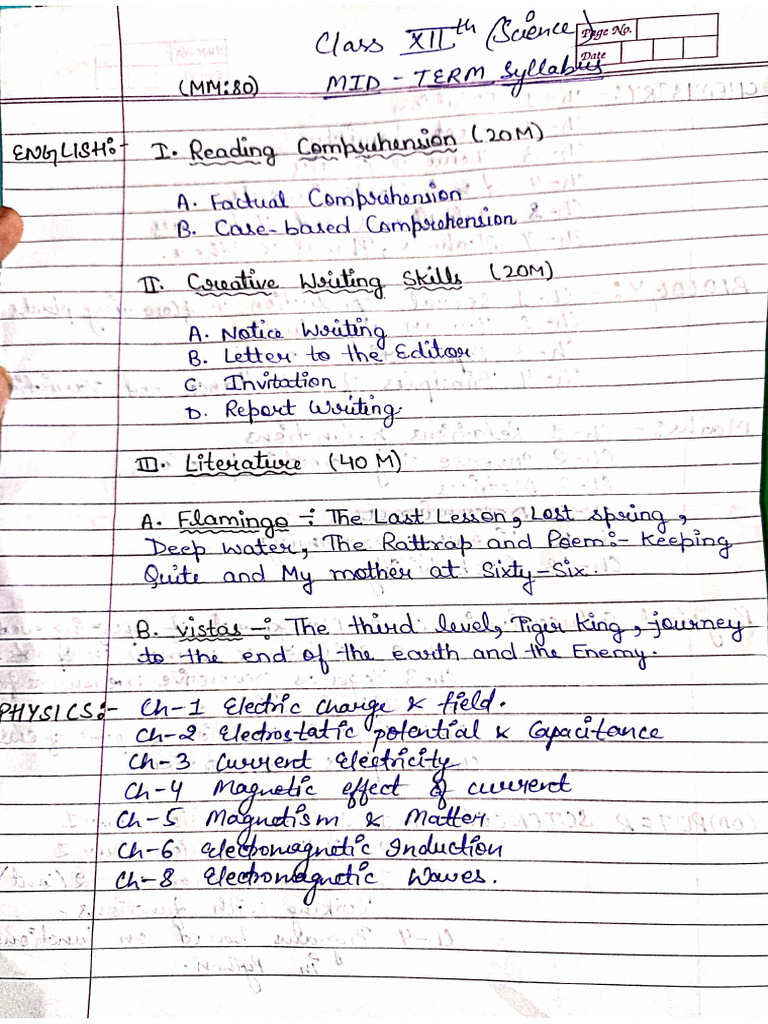 Class XIIth (Science)
Page No.
Date
(MM:80) MID-TERM Syllabus
ENGLISH:- I. Reading Comprehension (20M)
A. Factual Comprehension
B. Case-based Comprehension
II. Creative Writing Skills (20M)
A. Notice Writing
B. Letter to the Editor
C. Invitation
D. Report Writing
III. Literature (40 M)
A. Flamingo -: The Last Lesson, Lost spring,
Deep water, The Rattrap and Poem:- Keeping
Quite and My mother at Sixty-Six.
B. vistas -: The third level, Tiger King, journey
to the end of the earth and the Enemy.
PHYSICS:- Ch-1 Electric charge & field.
Ch-2 Electrostatic potential & Capacitance
Ch-3 Current Electricity
Ch-4 Magnetic effect of current
Ch-5 Magnetism & Matter
Ch-6 Electromagnetic Induction
Ch-8 Electromagnetic Waves.